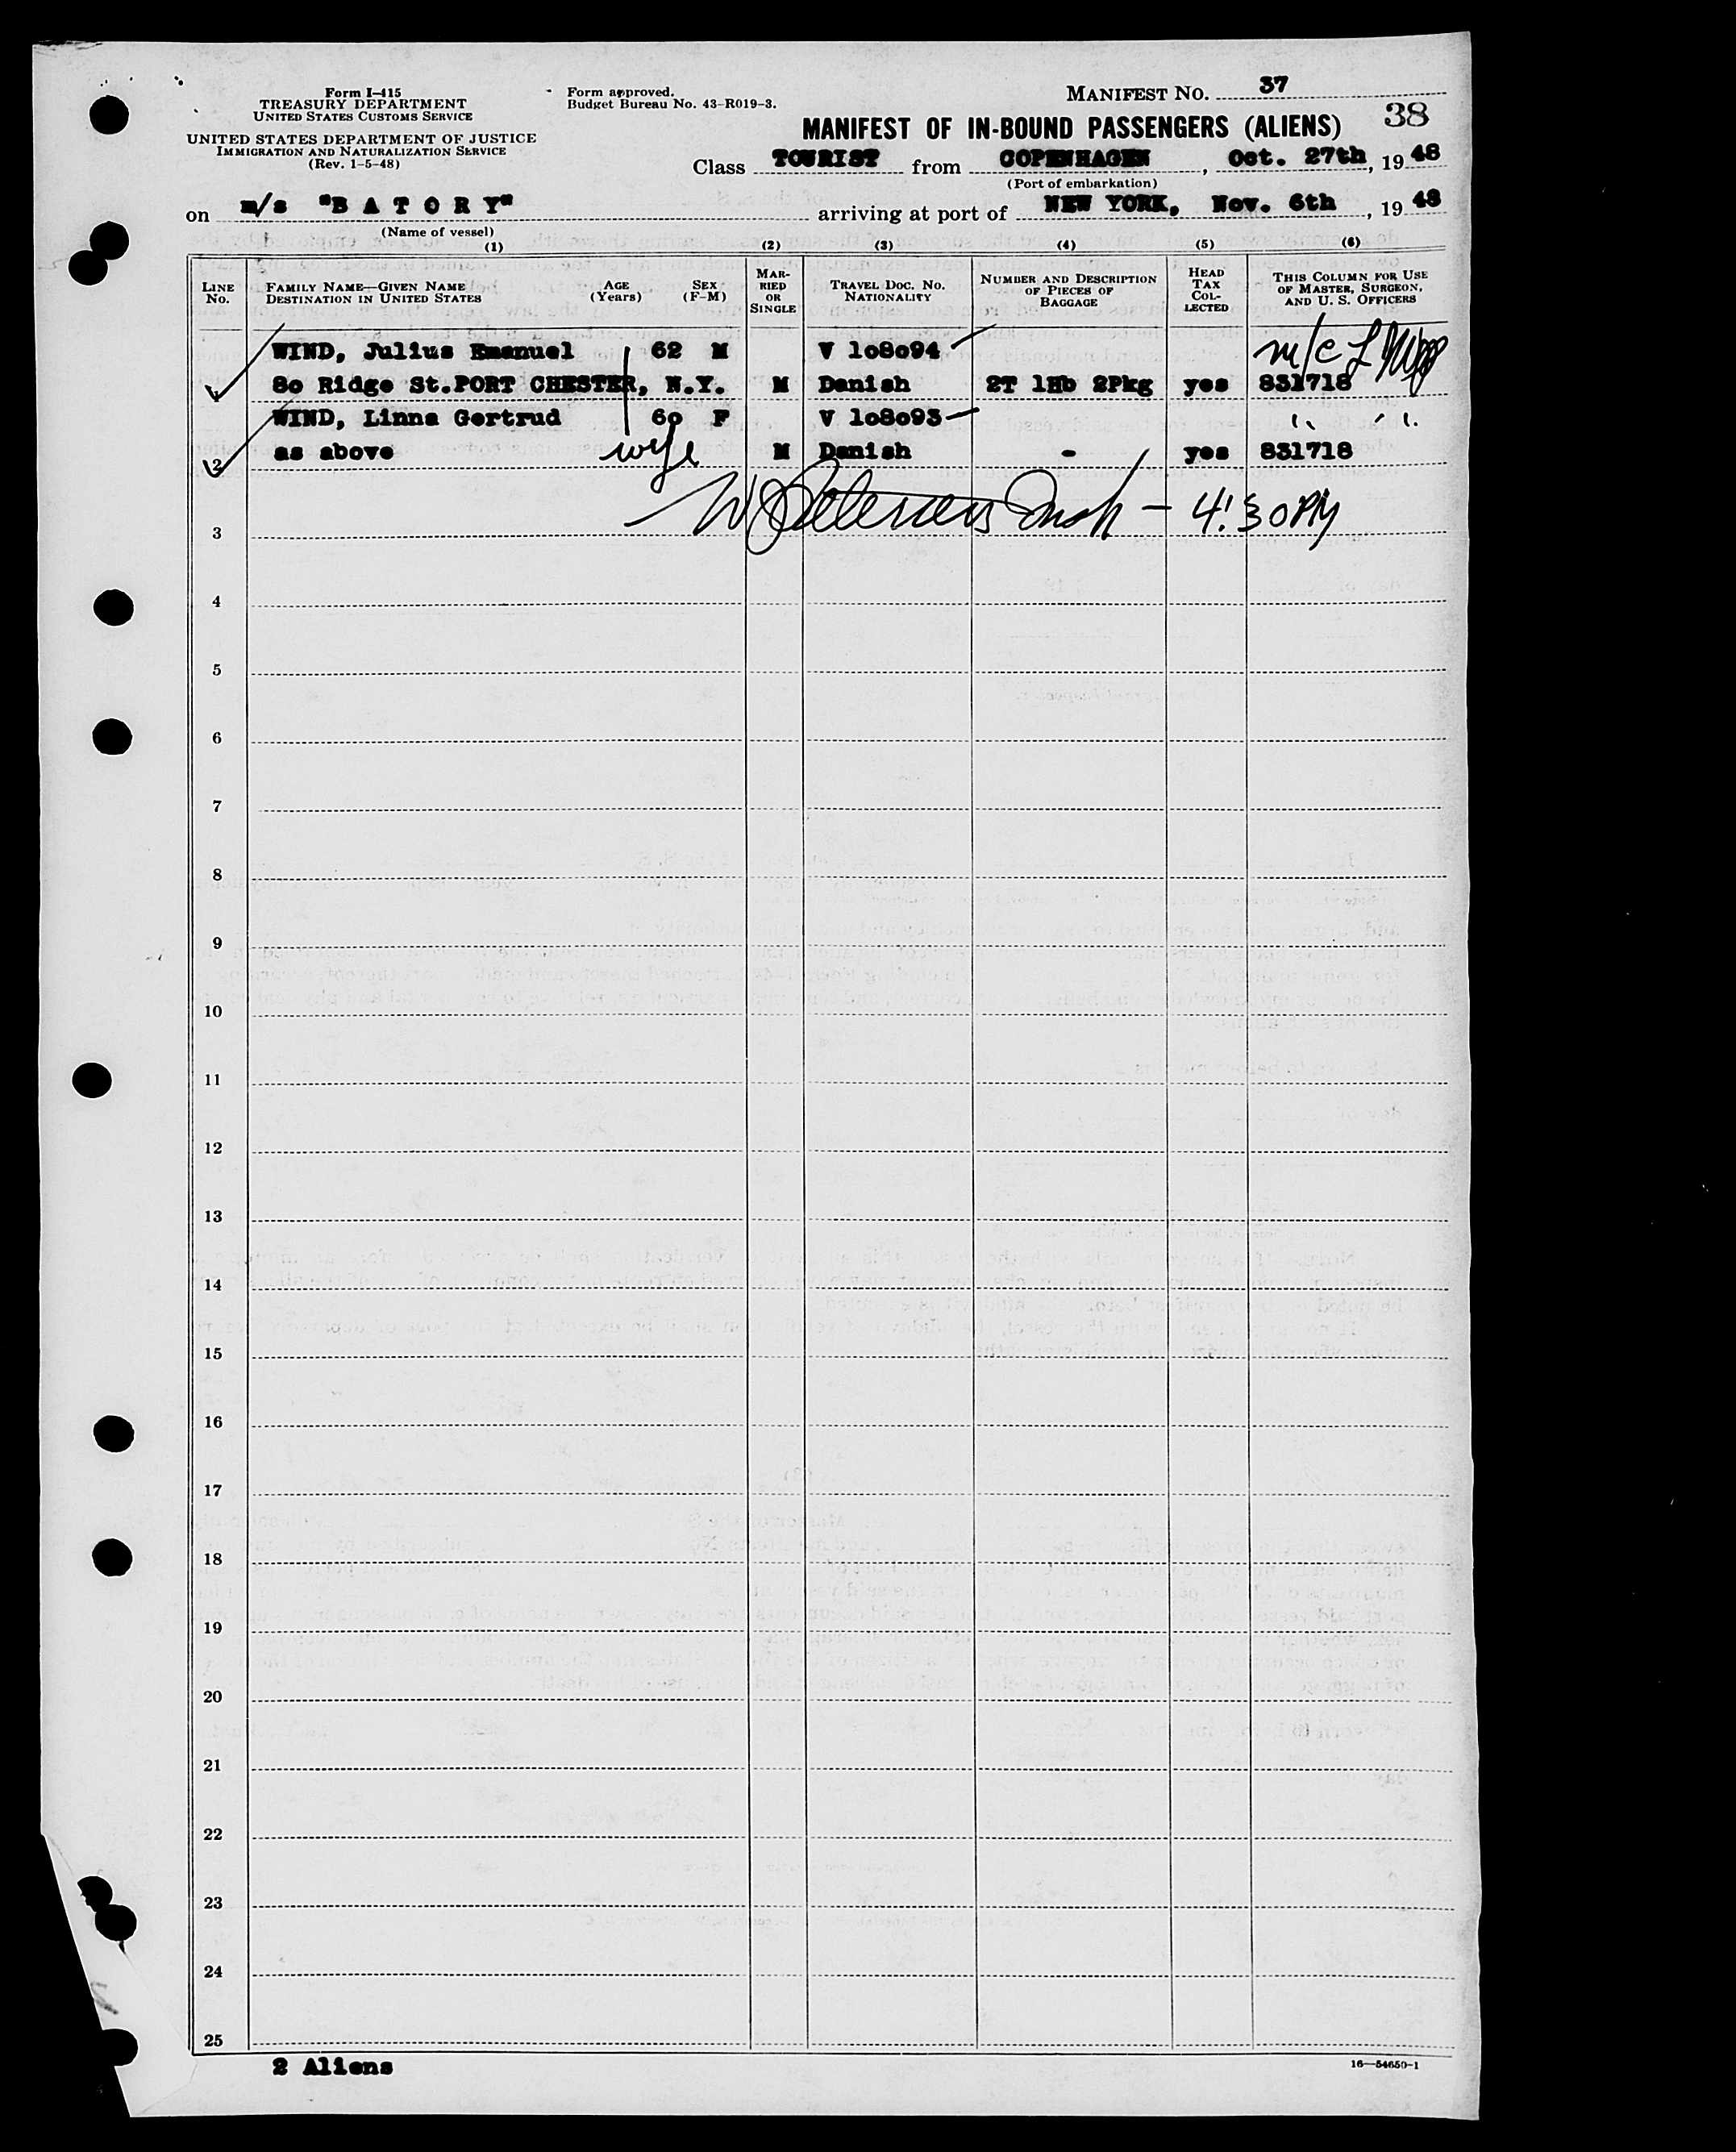 Form I-415
TREASURY DEPARTMENT
UNITED STATES CUSTOMS SERVICE
UNITED STATES DEPARTMENT OF JUSTICE
IMMIGRATION AND NATURALIZATION SERVICE
(Rev. 1-5-48)
Form approved.
Budget Bureau No. 43-R019-3.
MANIFEST NO. 37
38
MANIFEST OF IN-BOUND PASSENGERS (ALIENS)
Class TOURIST from COPENHAGEN, Oct. 27th, 1948
(Port of embarkation)
on m/s "B A T O R Y" arriving at port of NEW YORK, Nov. 6th, 1948
(Name of vessel)
(1) (2) (3) (4) (5) (6)
LINE NO. FAMILY NAME—GIVEN NAME DESTINATION IN UNITED STATES AGE (Years) SEX (F-M) MARRIED OR SINGLE TRAVEL DOC. NO. NATIONALITY NUMBER AND DESCRIPTION OF PIECES OF BAGGAGE HEAD TAX COLLECTED THIS COLUMN FOR USE OF MASTER, SURGEON, AND U. S. OFFICERS
WIND, Julius Emanuel 62 M V 108094 m/c
80 Ridge St. PORT CHESTER, N.Y. M Danish 2T 1Hb 2Pkg yes 831718
WIND, Linna Gertrud 60 F V 108093 " "
2 as above wife M Danish - yes 831718
3 — 4:30 PM
4
5
6
7
8
9
10
11
12
13
14
15
16
17
18
19
20
21
22
23
24
25
2 Aliens
16—54650-1